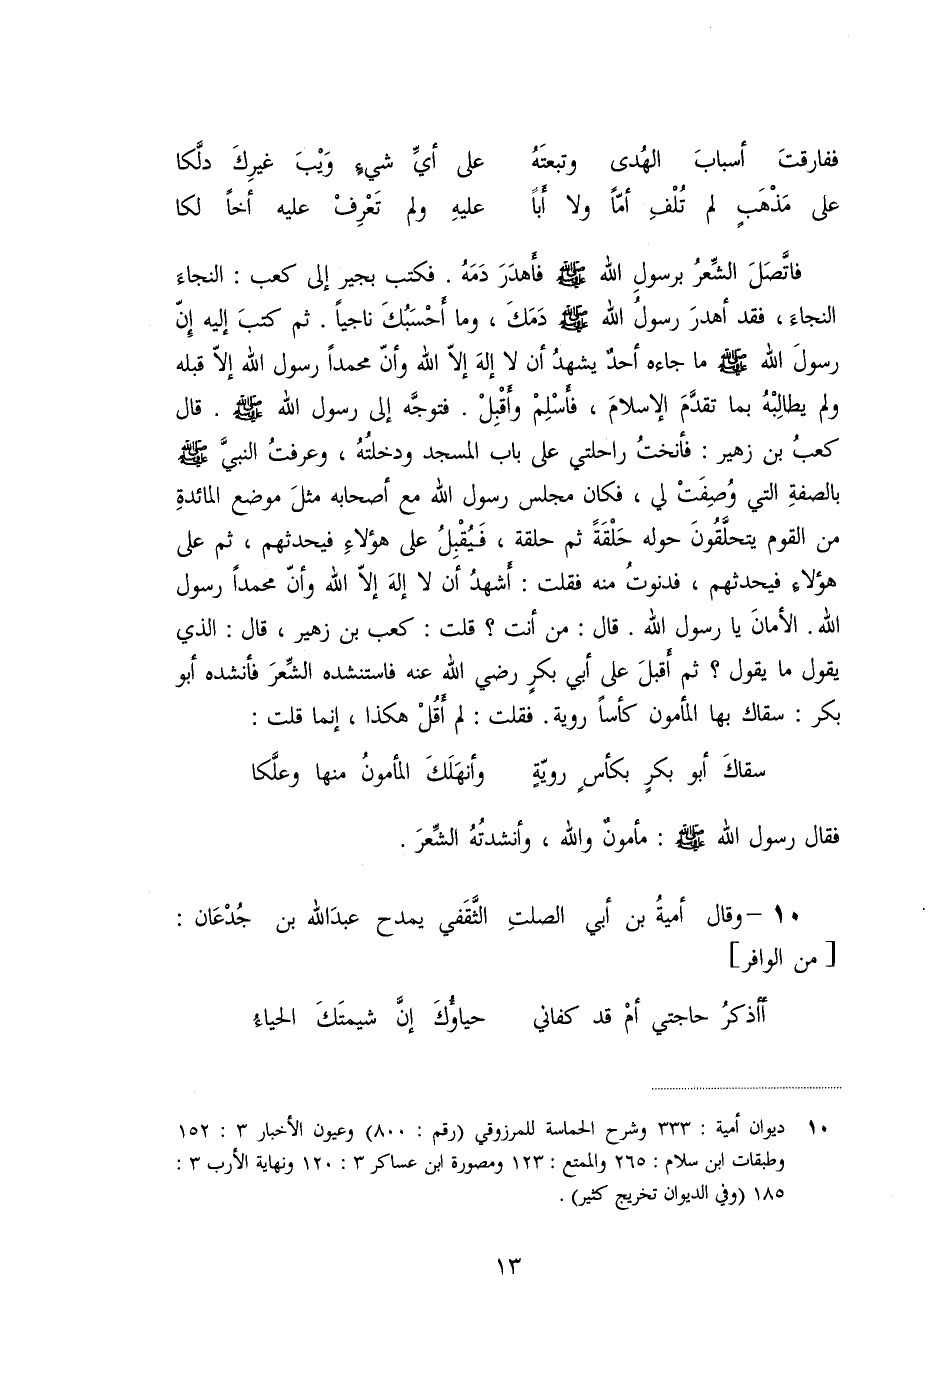 ففارقتَ أسبابَ الهُدى وتبعتَهُ على أيِّ شيءٍ وَيْبَ غيرِكَ دلَّكا
على مَذْهَبٍ لم تُلْفِ أمّاً ولا أَباً عليهِ ولم تَعْرِفْ عليه أخاً لكا
فاتَّصَلَ الشِّعرُ برسولِ الله ﷺ فأَهدَرَ دَمَهُ . فكتب بجير إلى كعب : النجاءَ
النجاءَ ، فقد أهدرَ رسولُ الله ﷺ دَمَكَ ، وما أَحْسَبُكَ ناجياً . ثم كتبَ إليه إنّ
رسولَ الله ﷺ ما جاءه أحدٌ يشهدُ أن لا إلهَ إلاّ الله وأنّ محمداً رسول الله إلاّ قبله
ولم يطالِبْهُ بما تقدَّمَ الإسلامَ ، فأَسْلِمْ وأَقْبِلْ . فتوجَّه إلى رسول الله ﷺ . قال
كعبُ بن زهير : فأنختُ راحلتي على باب المسجد ودخلتُهُ ، وعرفتُ النبيَّ ﷺ
بالصفةِ التي وُصِفَتْ لي ، فكان مجلس رسول الله مع أصحابه مثلَ موضع المائدةِ
من القوم يتحلَّقُونَ حوله حَلْقَةً ثم حلقة ، فَيُقْبِلُ على هؤلاءِ فيحدثهم ، ثم على
هؤلاءِ فيحدثهم ، فدنوتُ منه فقلت : أَشهدُ أن لا إلهَ إلاّ الله وأنّ محمداً رسول
الله . الأمانَ يا رسول الله . قال : من أنت ؟ قلت : كعب بن زهير ، قال : الذي
يقول ما يقول ؟ ثم أَقبلَ على أبي بكرٍ رضي الله عنه فاستنشده الشِّعرَ فأنشده أبو
بكر : سقاك بها المأمون كأساً روية . فقلت : لم أَقُلْ هكذا ، إنما قلت :
سقاكَ أبو بكرٍ بكأسٍ رويّةٍ وأنهَلَكَ المأمونُ منها وعلَّكا
فقال رسول الله ﷺ : مأمونٌ والله ، وأنشدتُهُ الشِّعرَ .
١٠ – وقال أميةُ بن أبي الصلتِ الثَّقَفي يمدح عبدَالله بن جُدْعَان :
[ من الوافر ]
أأَذكرُ حاجتي أمْ قد كفاني حياؤُكَ إنَّ شيمتَكَ الحياءُ
١٠ ديوان أمية : ٣٣٣ وشرح الحماسة للمرزوقي (رقم : ٨٠٠) وعيون الأخبار ٣ : ١٥٢
وطبقات ابن سلام : ٢٦٥ والممتع : ١٢٣ ومصورة ابن عساكر ٣ : ١٢٠ ونهاية الأرب ٣ :
١٨٥ (وفي الديوان تخريج كثير) .
١٣